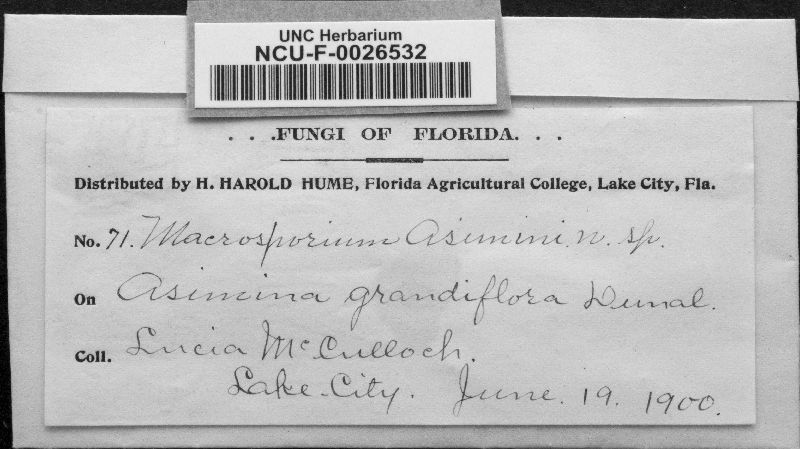 UNC Herbarium
NCU-F-0026532
. . .FUNGI OF FLORIDA. . .
Distributed by H. HAROLD HUME, Florida Agricultural College, Lake City, Fla.
No. 71. Macrosporium Asimini n. sp.
On Asimina grandiflora Dunal.
Coll. Lucia McCulloch.
Lake City. June. 19. 1900.